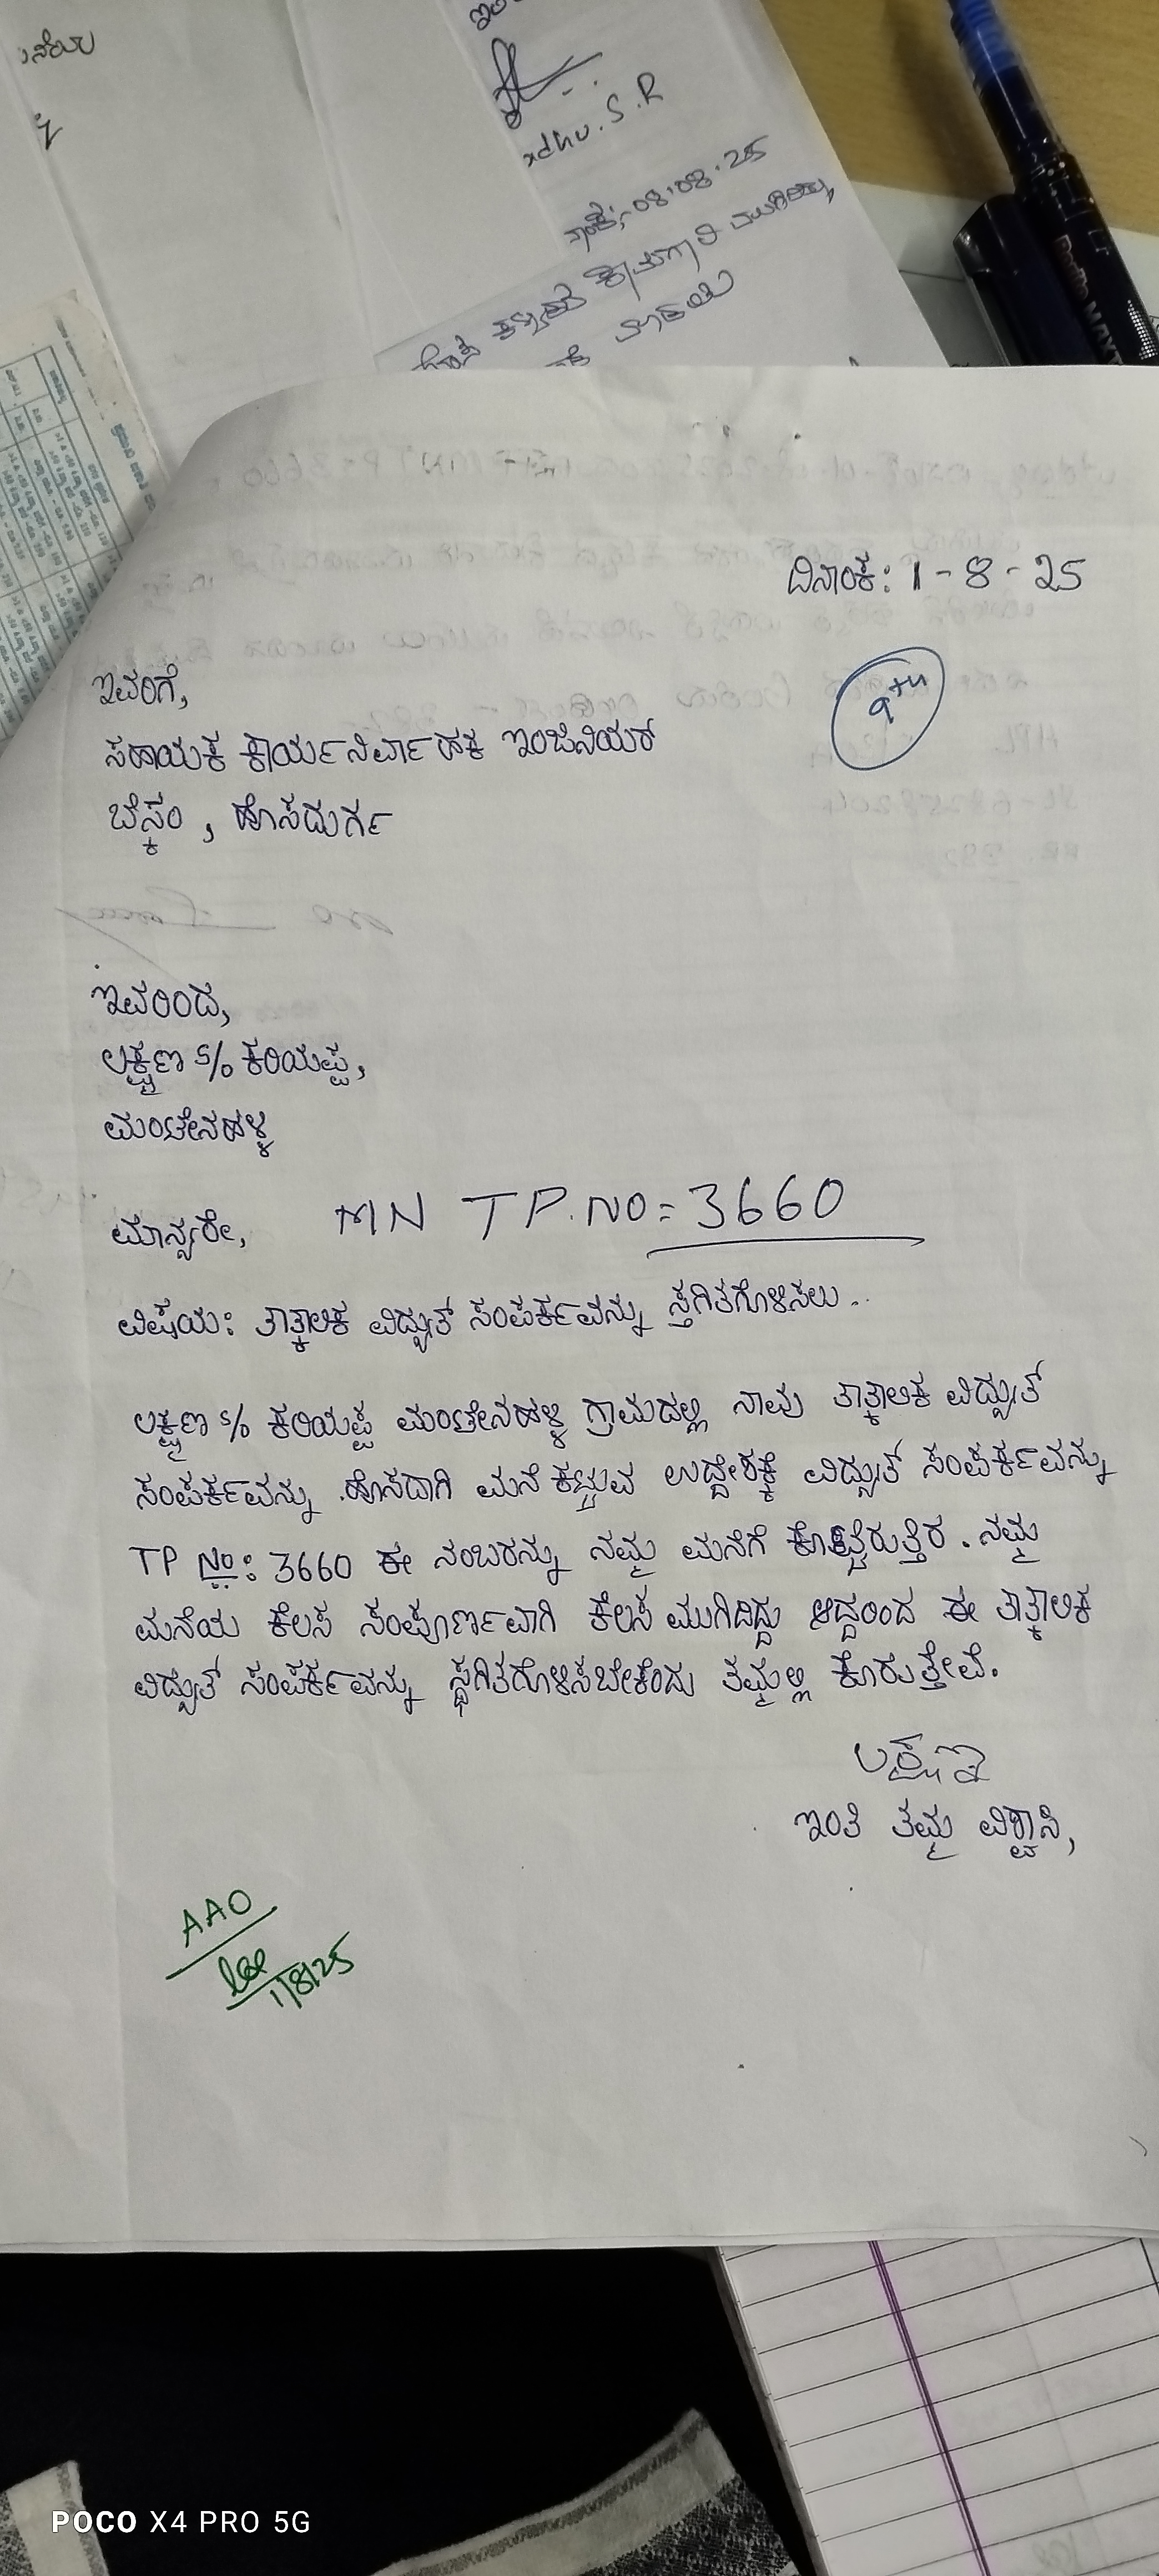 xdhu.S.R
08.08.25
ದಿನಾಂಕ: 1-8-25
9th
ಇವರಿಗೆ,
ಸಹಾಯಕ ಕಾರ್ಯನಿರ್ವಾಹಕ ಇಂಜಿನಿಯರ್
ಬೆಸ್ಕಂ , ಹೊಸದುರ್ಗ
ಇವರಿಂದ,
ಲಕ್ಷ್ಮಣ s/o ಕರಿಯಪ್ಪ,
ಮಂಟೇನಹಳ್ಳಿ
ಮಾನ್ಯರೇ, MN TP.NO= 3660
ವಿಷಯ: ತಾತ್ಕಾಲಿಕ ವಿದ್ಯುತ್ ಸಂಪರ್ಕವನ್ನು ಸ್ತಗಿತಗೊಳಿಸಲು..
ಲಕ್ಷ್ಮಣ s/o ಕರಿಯಪ್ಪ ಮಂಟೇನಹಳ್ಳಿ ಗ್ರಾಮದಲ್ಲಿ ನಾವು ತಾತ್ಕಾಲಿಕ ವಿದ್ಯುತ್
ಸಂಪರ್ಕವನ್ನು ಹೊಸದಾಗಿ ಮನೆ ಕಟ್ಟುವ ಉದ್ದೇಶಕ್ಕೆ ವಿದ್ಯುತ್ ಸಂಪರ್ಕವನ್ನು
TP No: 3660 ಈ ನಂಬರನ್ನು ನಮ್ಮ ಮನೆಗೆ ಕೊಟ್ಟಿರುತ್ತಿರ. ನಮ್ಮ
ಮನೆಯ ಕೆಲಸ ಸಂಪೂರ್ಣವಾಗಿ ಕೆಲಸ ಮುಗಿದಿದ್ದು ಆದ್ದರಿಂದ ಈ ತಾತ್ಕಾಲಿಕ
ವಿದ್ಯುತ್ ಸಂಪರ್ಕವನ್ನು ಸ್ಥಗಿತಗೊಳಿಸಬೇಕೆಂದು ತಮ್ಮಲ್ಲಿ ಕೊರುತ್ತೇವೆ.
ಲಕ್ಷ್ಮಣ
ಇಂತಿ ತಮ್ಮ ವಿಶ್ವಾಸಿ,
AAO
1/8/25
POCO X4 PRO 5G